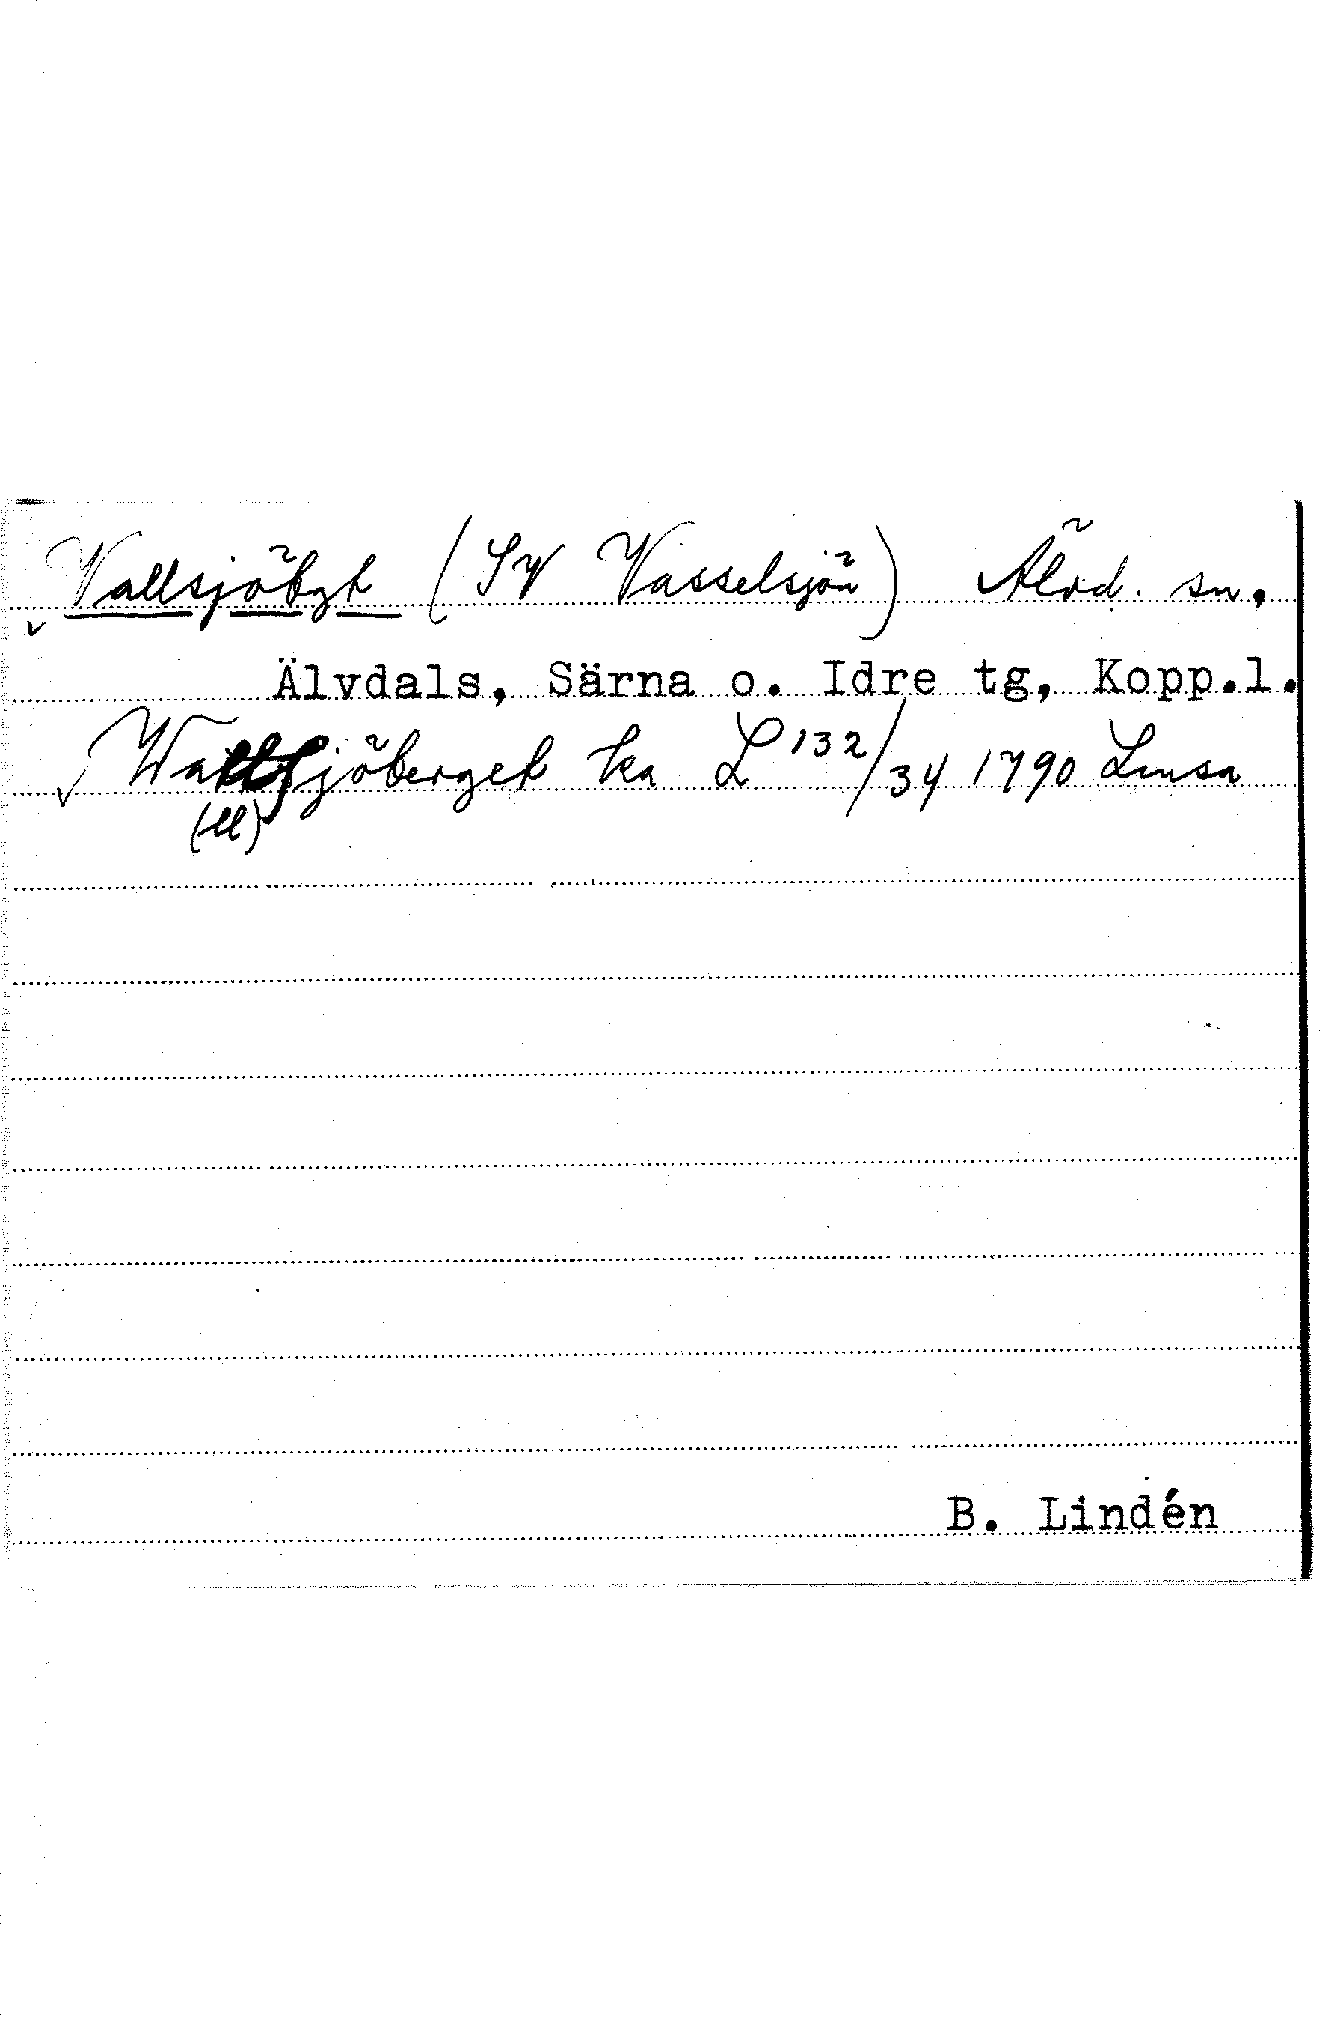 Vallsjöbgt (SV Vasselsjön) Älvd. sn,
Älvdals, Särna o. Idre tg, Kopp.l.
Wallsjöberget ka L 132/34 1790 Lmsa
(ll)
B. Lindén